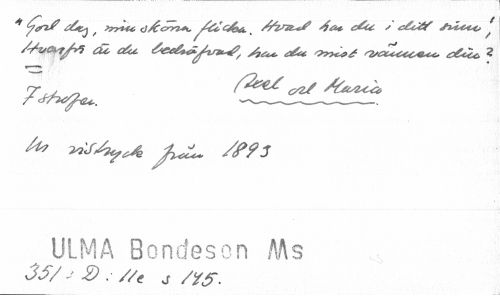 "God dag, min sköna flicka. Hvad har du i ditt sinn',
Hvarför är du bedröfvad, har du mist vännen din?
=
7 strofer.
Axel och Maria
Ur vistryck från 1893
ULMA Bondeson Ms
351 : D : 11e s 145.